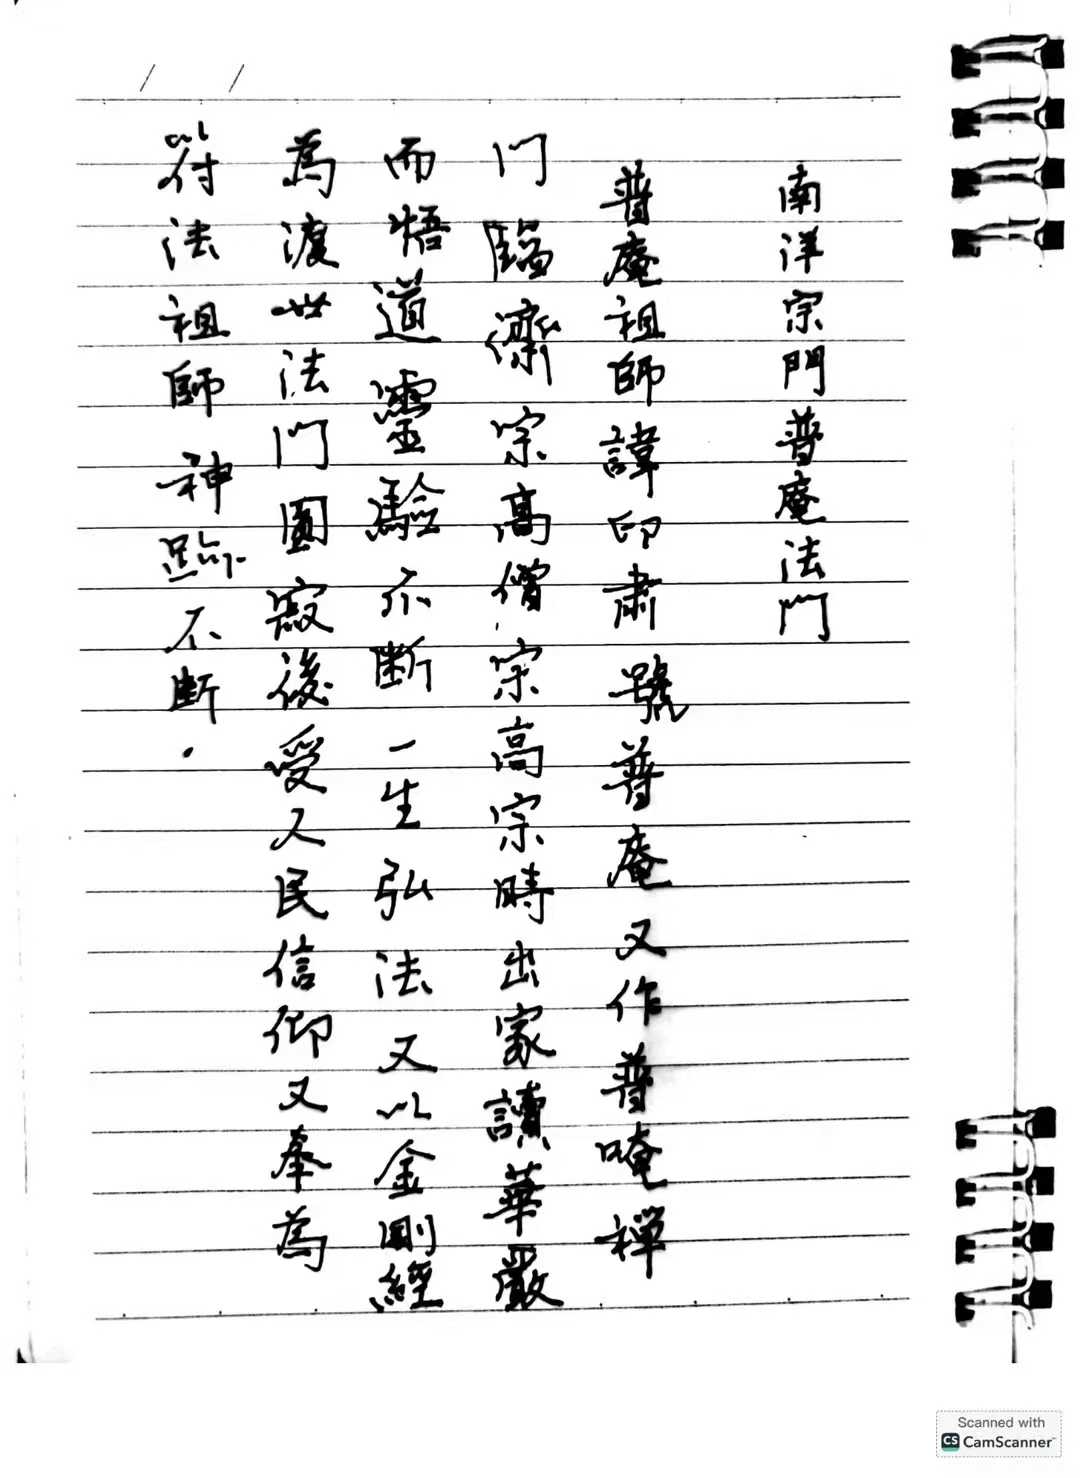 南洋宗門普庵法門
普庵祖師諱印肅號普庵又作普唵禪
門臨濟宗高僧宗高宗時出家讀華嚴
而悟道靈驗不斷一生弘法又以金剛經
為渡世法門圓寂後受人民信仰又奉為
符法祖師神跡不斷.
Scanned with
CS CamScanner